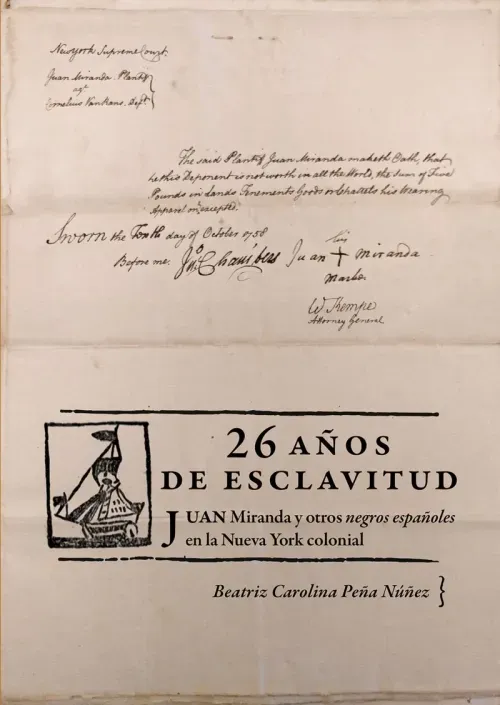 New York Supreme Court.
Juan Miranda. Plantif
agt
Cornelius VanRans. Deft.
The said Plantif Juan Miranda maketh Oath, that
he this Deponent is not worth in all the World, the Sum of Five
Pounds in Lands Tenements Goods or Chattels his Wearing
Apparel only excepted.
Sworn the Tenth day of October 1758
Before me. Jno Chambers
his
Juan + Miranda
Marke.
W Kempe
Attorney General
26 AÑOS
DE ESCLAVITUD
JUAN Miranda y otros negros españoles
en la Nueva York colonial
Beatriz Carolina Peña Núñez }